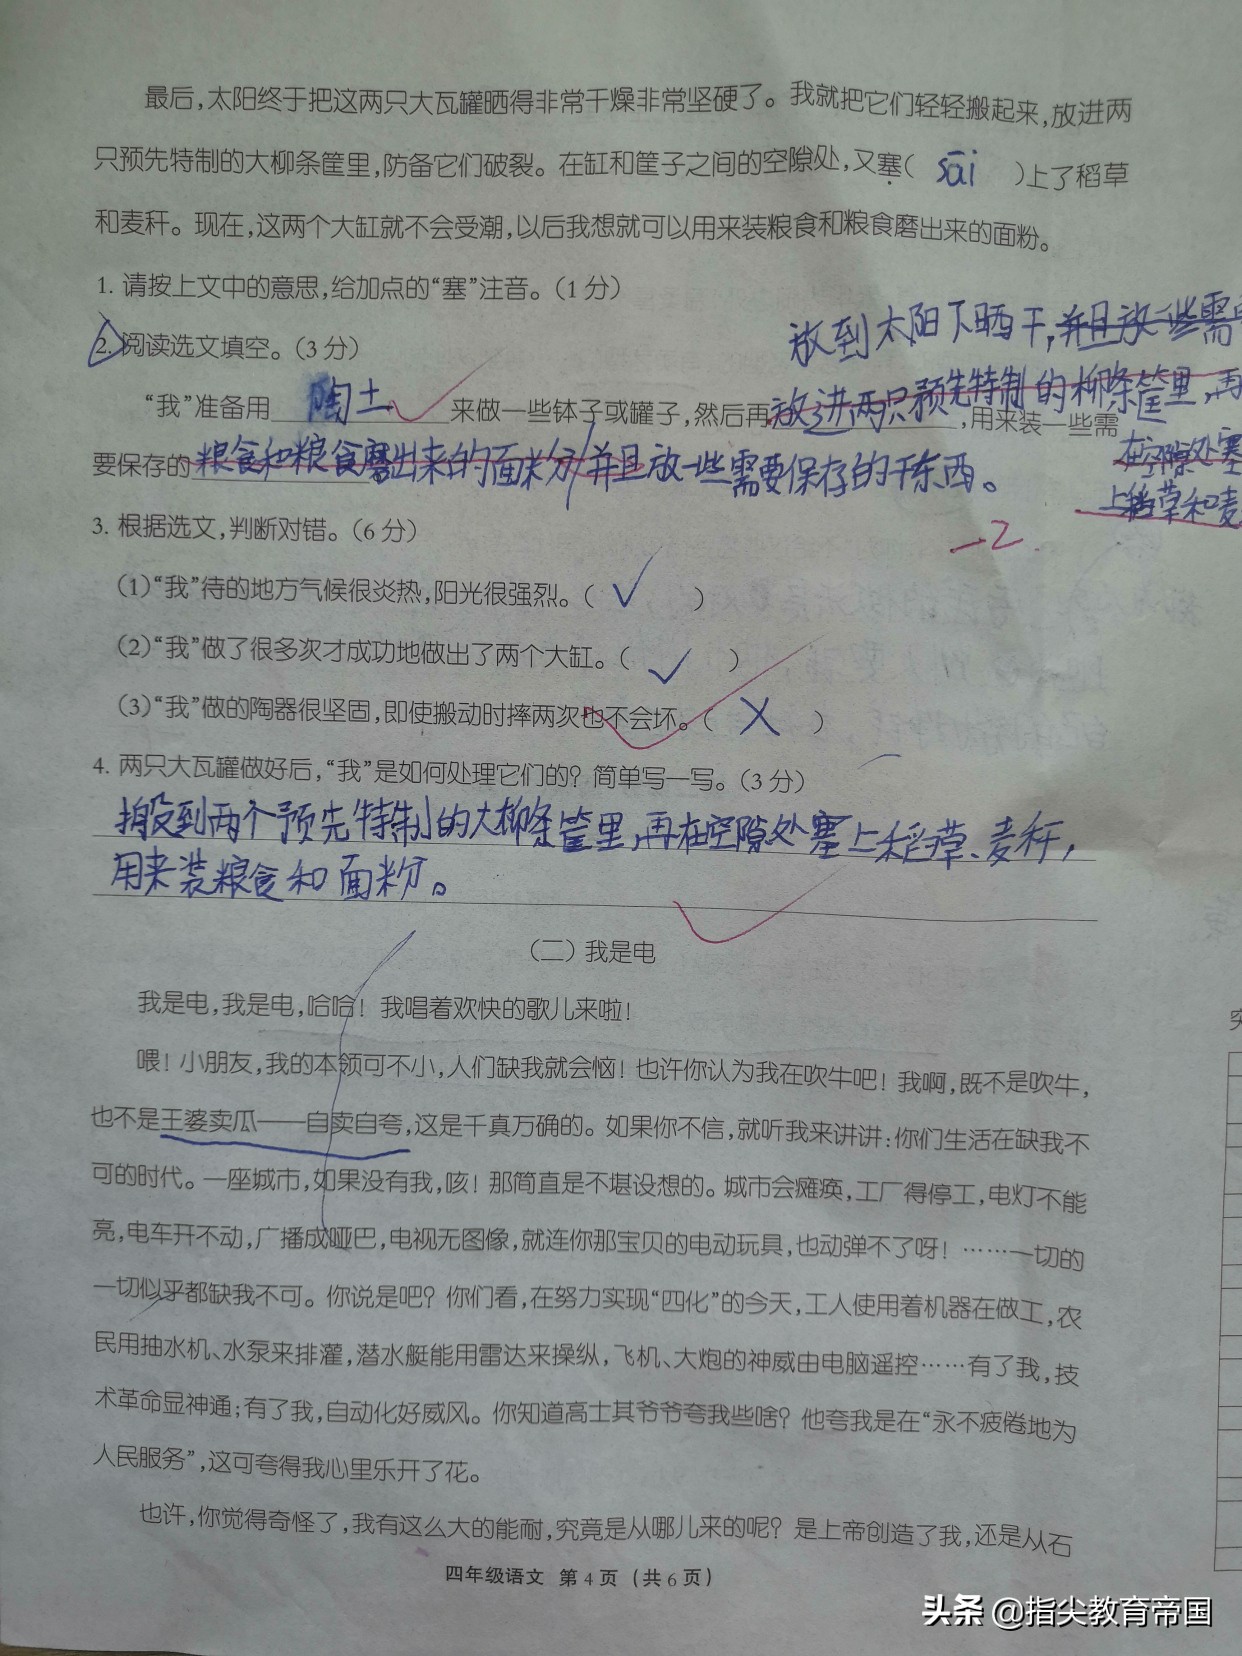 最后,太阳终于把这两只大瓦罐晒得非常干燥非常坚硬了。我就把它们轻轻搬起来,放进两
只预先特制的大柳条筐里,防备它们破裂。在缸和筐子之间的空隙处,又塞( sāi )上了稻草
和麦秆。现在,这两个大缸就不会受潮,以后我想就可以用来装粮食和粮食磨出来的面粉。
1. 请按上文中的意思,给加点的“塞”注音。(1分)
2. 阅读选文填空。(3分)
放到太阳下晒干,并且放一些需
“我”准备用 陶土 来做一些钵子或罐子,然后再 放进两只预先特制的柳条筐里,再 ,用来装一些需
在空隙处塞
要保存的 粮食和粮食磨出来的面粉 并且放一些需要保存的干东西。
上稻草和麦
3. 根据选文,判断对错。(6分)
-2
(1)“我”待的地方气候很炎热,阳光很强烈。( ✓ )
(2)“我”做了很多次才成功地做出了两个大缸。( ✓ )
(3)“我”做的陶器很坚固,即使搬动时摔两次也不会坏。( X )
4. 两只大瓦罐做好后,“我”是如何处理它们的?简单写一写。(3分)
搬到两个预先特制的大柳条筐里,再在空隙处塞上稻草、麦秆,
用来装粮食和面粉。
(二)我是电
我是电,我是电,哈哈!我唱着欢快的歌儿来啦!
喂!小朋友,我的本领可不小,人们缺我就会恼!也许你认为我在吹牛吧!我啊,既不是吹牛,
也不是王婆卖瓜——自卖自夸,这是千真万确的。如果你不信,就听我来讲讲:你们生活在缺我不
可的时代。一座城市,如果没有我,咳!那简直是不堪设想的。城市会瘫痪,工厂得停工,电灯不能
亮,电车开不动,广播成哑巴,电视无图像,就连你那宝贝的电动玩具,也动弹不了呀!……一切的
一切似乎都缺我不可。你说是吧?你们看,在努力实现“四化”的今天,工人使用着机器在做工,农
民用抽水机、水泵来排灌,潜水艇能用雷达来操纵,飞机、大炮的神威由电脑遥控……有了我,技
术革命显神通;有了我,自动化好威风。你知道高士其爷爷夸我些啥?他夸我是在“永不疲倦地为
人民服务”,这可夸得我心里乐开了花。
也许,你觉得奇怪了,我有这么大的能耐,究竟是从哪儿来的呢?是上帝创造了我,还是从石
四年级语文 第4页 (共6页)
头条 @指尖教育帝国